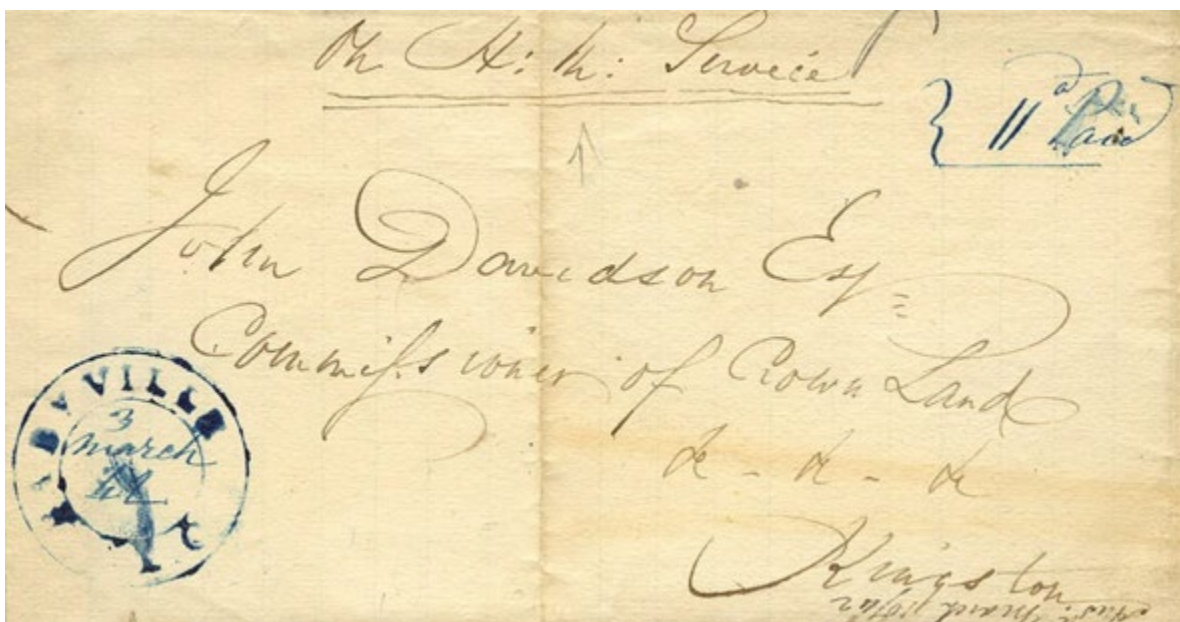 On H: M: Service
11d Paid
John Davidson Esq
Commissioner of Crown Land
&c - &c - &c
Kingston
3
March
42